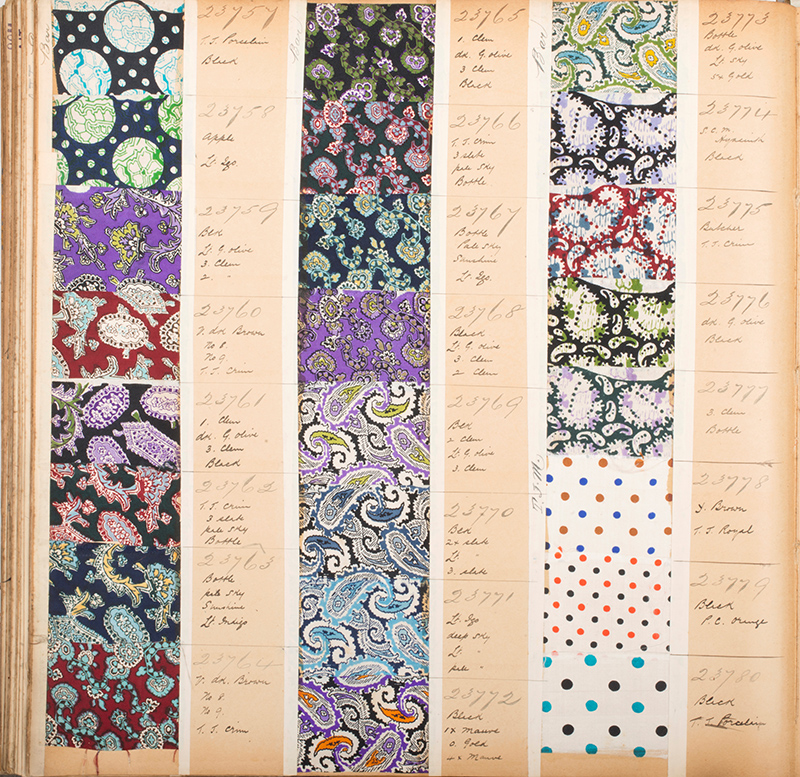 23757
T.T. Porcelain
Black
23758
Apple
Lt. Igo
23759
Bex
Lt. G. olive
3. Clem
2 "
23760
7. dk. Brown
No 8.
No 9.
T.T. Crim
23761
1. Clem
dk. G. olive
3. Clem
Black
23762
T.T. Crim
3 slate
pale sky
Bottle
23763
Bottle
pale sky
Sunshine
Lt. Indigo
23764
7. dk. Brown
No 8.
No 9.
T.T. Crim
23765
1. Clem
dk. G. olive
3 Clem
Black
23766
T.T. Crim
3 slate
pale sky
Bottle
23767
Bottle
Pale sky
Sunshine
Lt. Igo.
23768
Black
Lt. G. olive
3 Clem
2 Clem
23769
Bex
2 Clem
Lt. G. olive
3. Clem
23770
Bex
2x slate
Lt "
3. slate
23771
Lt. Igo
deep sky
Lt "
pale "
23772
Black
1x Mauve
O. Gold
4x Mauve
23773
Bottle
dk. G. olive
Lt sky
5x Gold
23774
S.C.M. Hyacinth
Black
23775
Butcher
T.T. Crim
23776
dk. G. olive
Black
23777
3. Clem
Bottle
23778
Brown
T.T. Royal
23779
Black
P.C. Orange
23780
Black
T.T. Porcelain